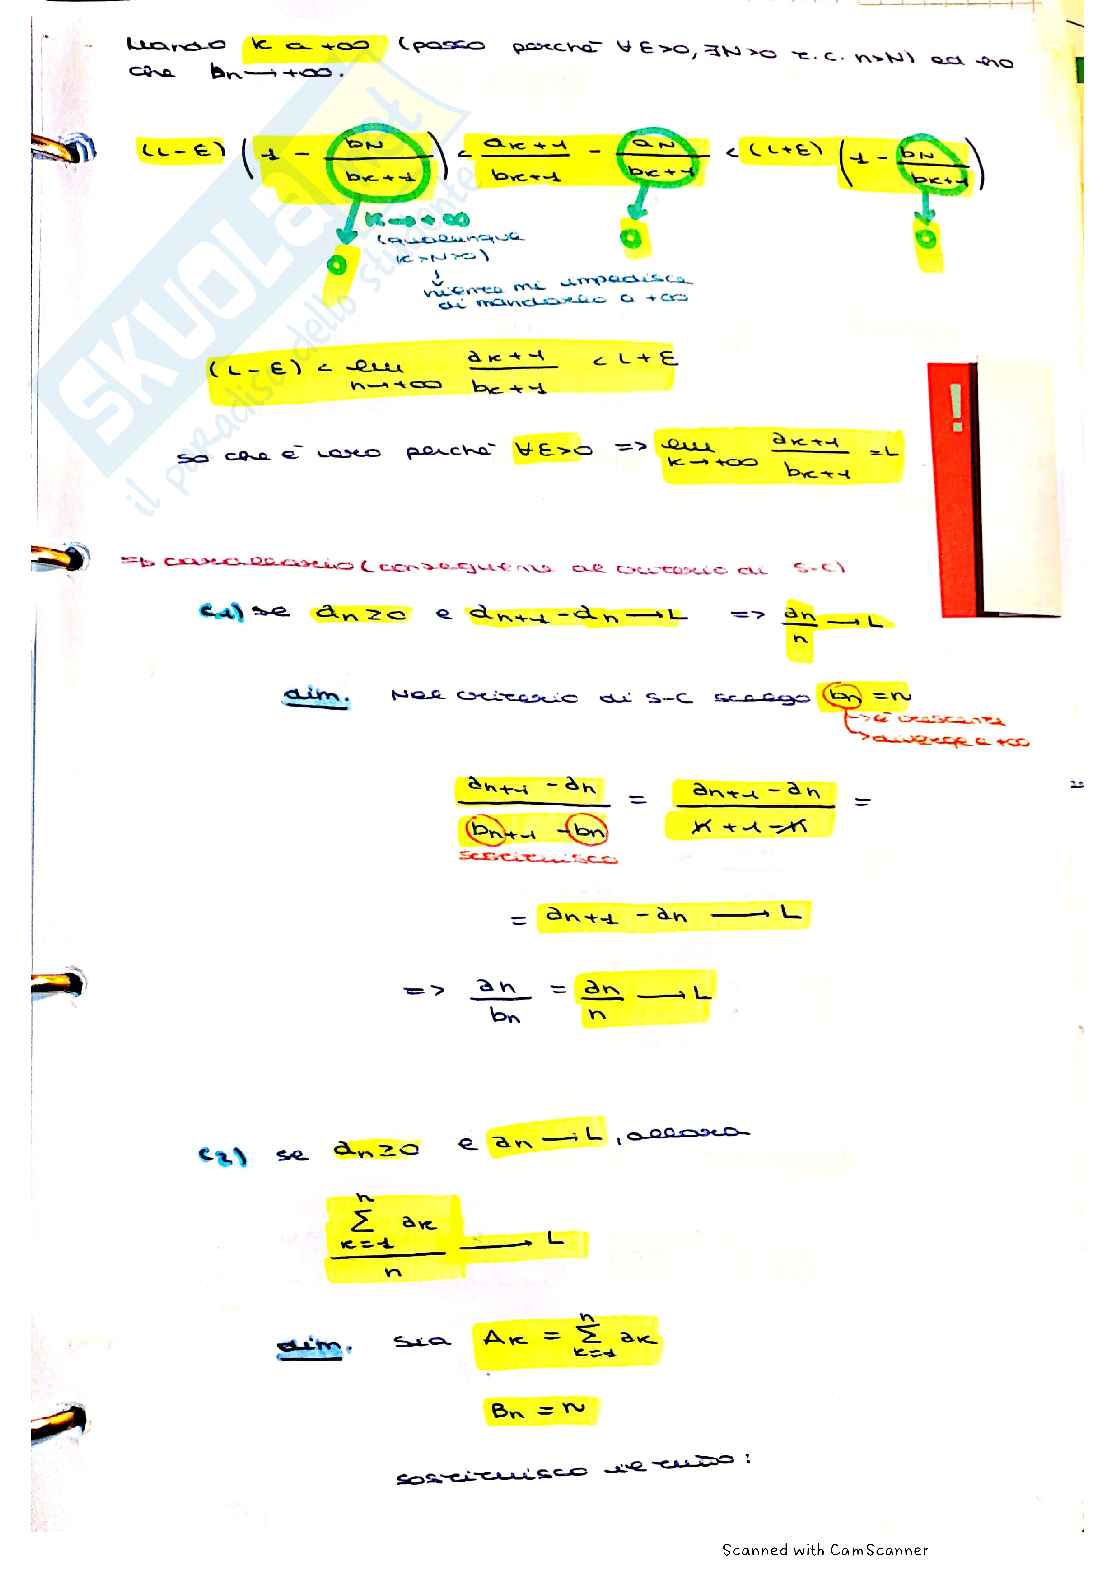 Mando k a +∞ (posso perché ∀ε>0, ∃N>0 t.c. n>N) ed ho
che bn → +∞.
(L-ε) (1 - bN/bk+1) < ak+1/bk+1 - aN/bk+1 < (L+ε) (1 - bN/bk+1)
k → +∞
(qualunque
k>N>0)
0 0 0
niente mi impedisce
di mandarlo a +∞
(L-ε) < lim n→+∞ ak+1/bk+1 < L+ε
so che è vero perché ∀ε>0 => lim k→+∞ ak+1/bk+1 = L
!
=> corollario (conseguente al criterio di S-C)
C1) se an≥0 e an+1 - an → L => an/n → L
dim. Nel criterio di S-C scelgo bn = n
→ è crescente
→ diverge a +∞
an+1 - an / bn+1 - bn = an+1 - an / n+1-n =
sostituisco
= an+1 - an → L
=> an/bn = an/n → L
C2) se an≥0 e an → L, allora
n
Σ ak
k=1
n → L
dim. sia Ak = Σ n k=1 ak
Bn = n
sostituisco il tutto:
SKUOLA.net
il paradiso dello studente
Scanned with CamScanner